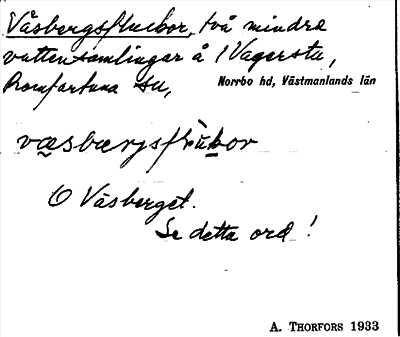 Våsbergsfluckor, två mindre
vattensamlingar å / Vagersta,
Romfartuna sn, Norrbo hd, Västmanlands län
O Våsberget.
Se detta ord!
A. THORFORS 1933